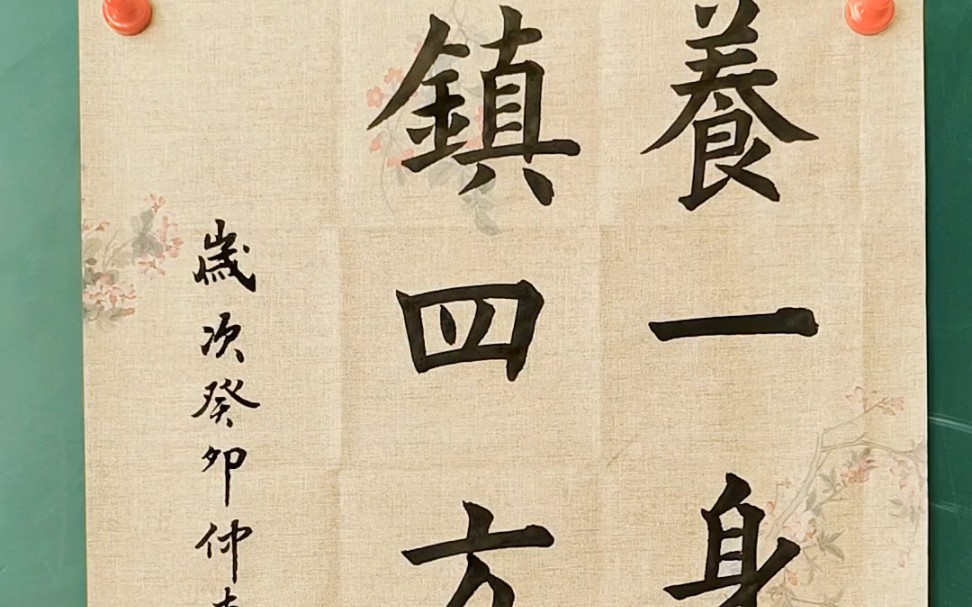 養一身
鎮四方
歲次癸卯仲